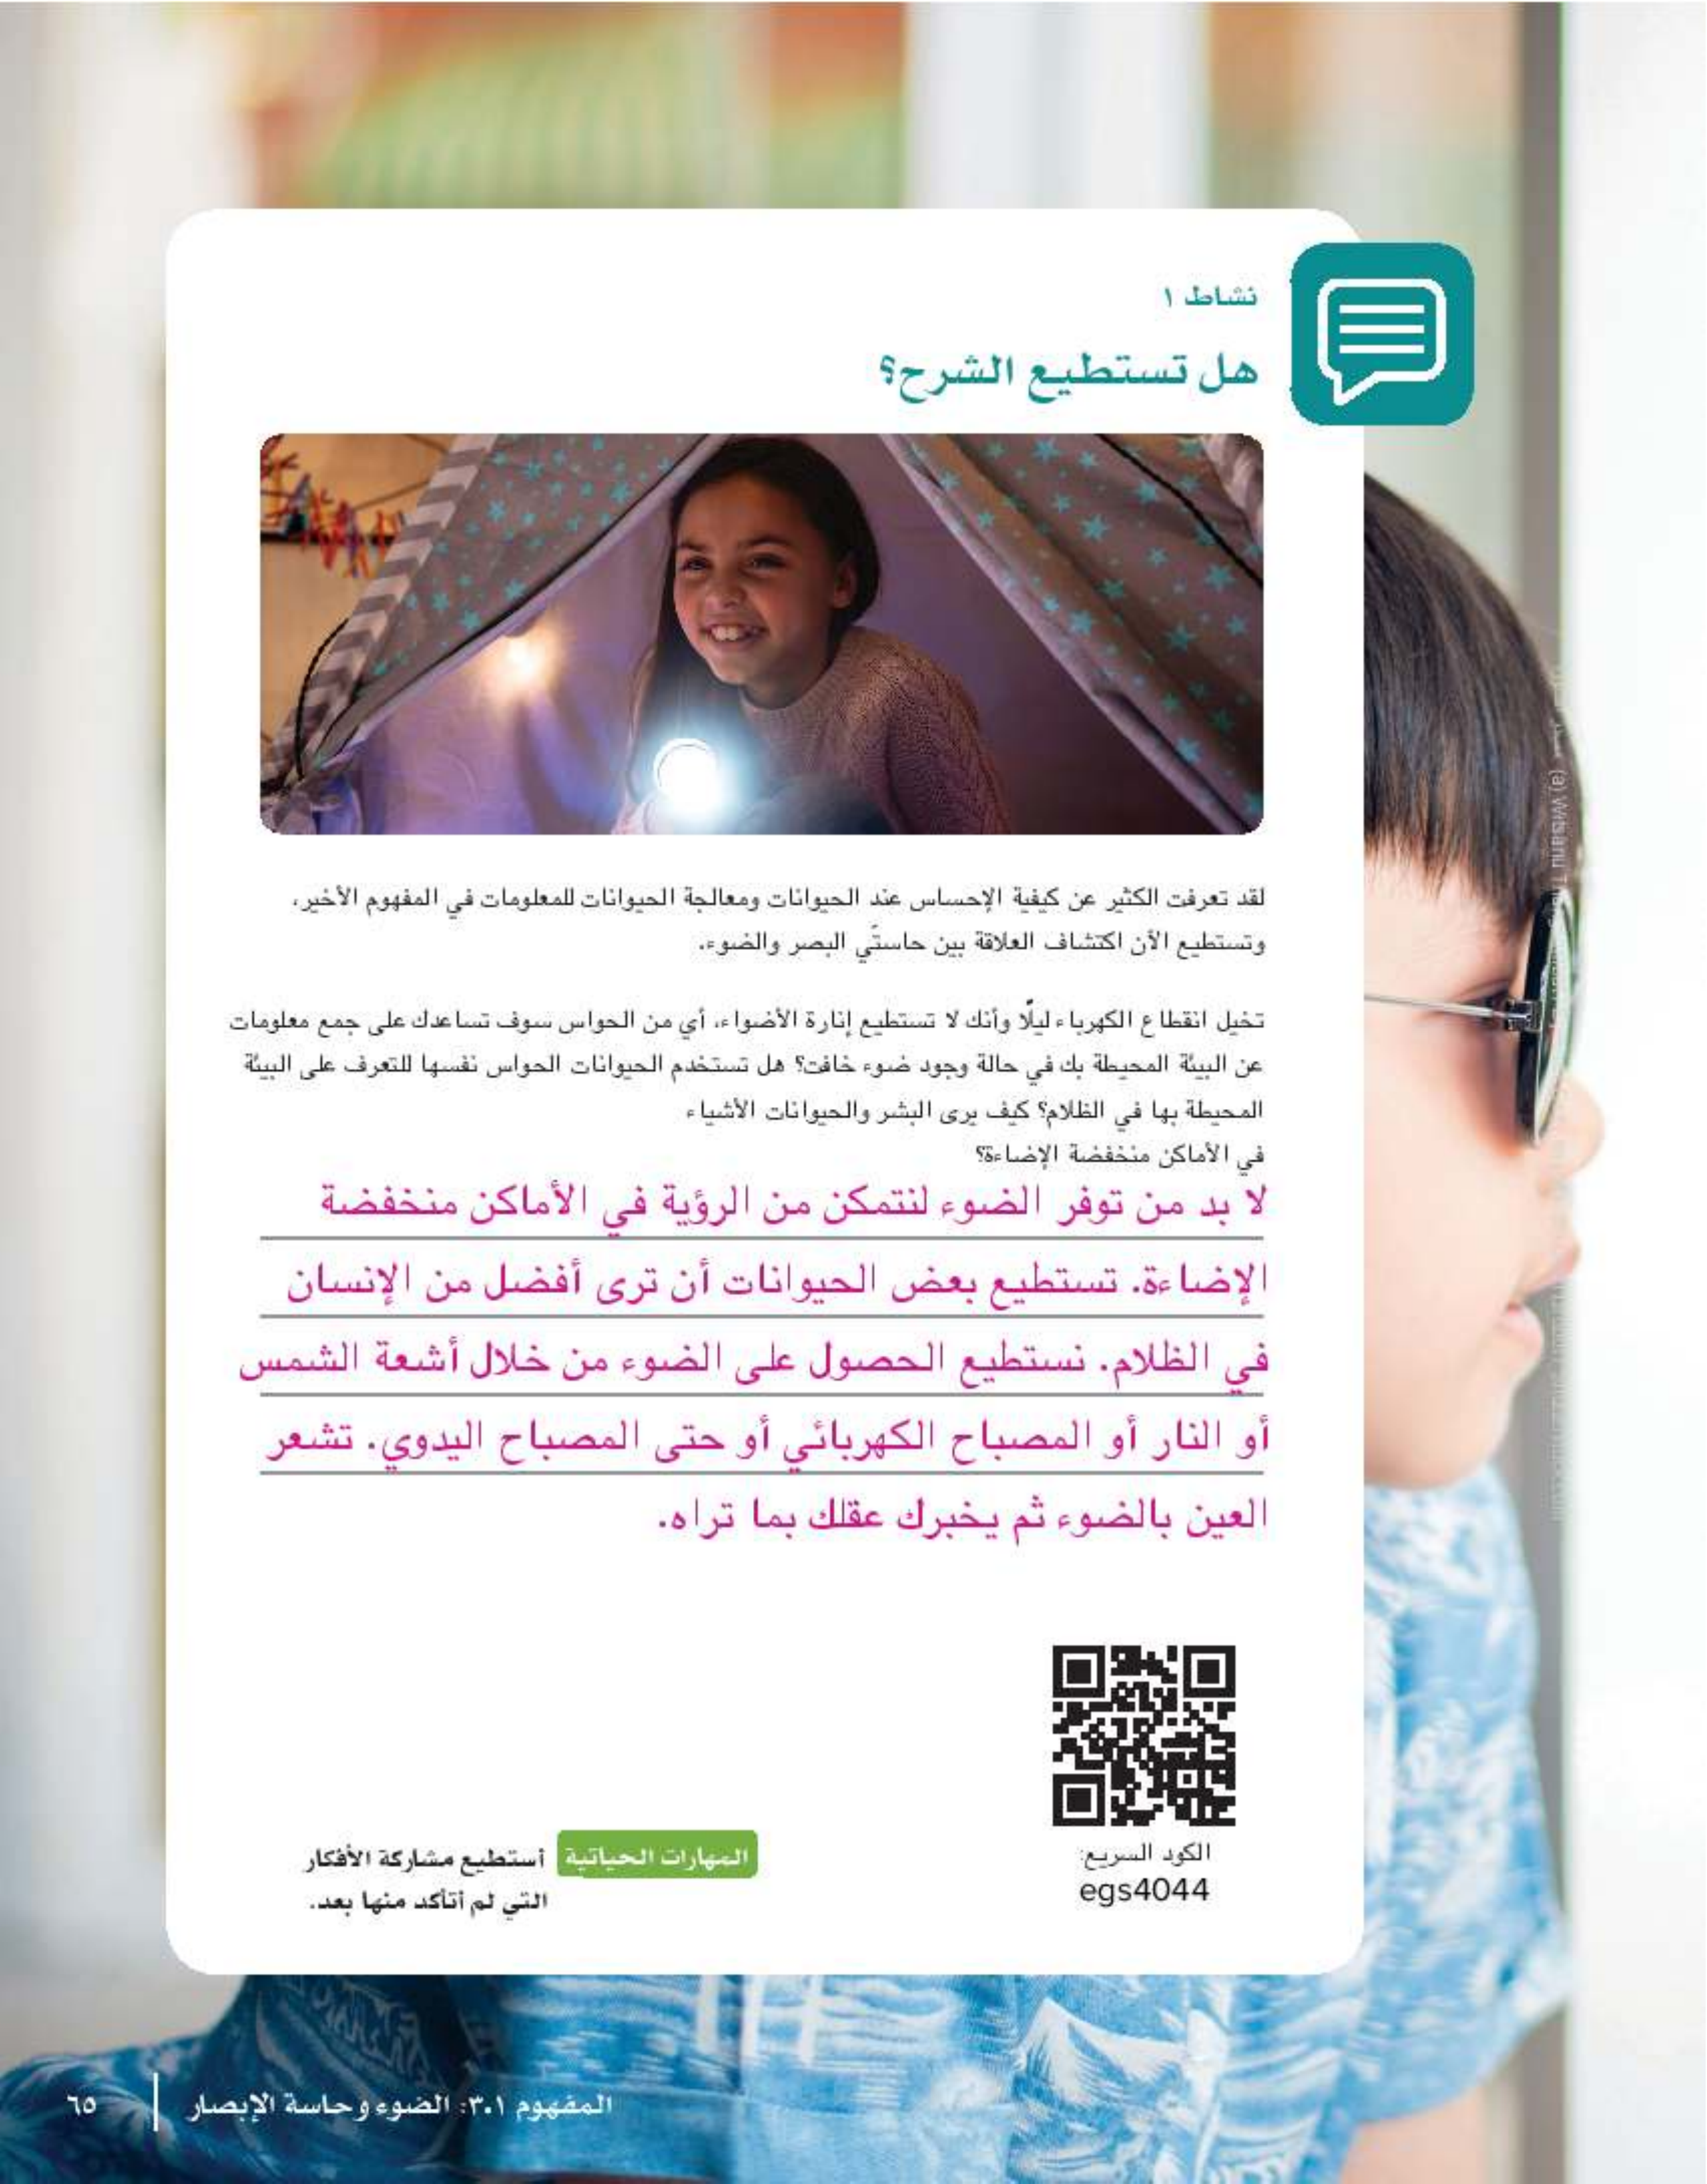 نشاط ١
هل تستطيع الشرح؟
لقد تعرفت الكثير عن كيفية الإحساس عند الحيوانات ومعالجة الحيوانات للمعلومات في المفهوم الأخير،
وتستطيع الآن اكتشاف العلاقة بين حاستَي البصر والضوء.
تخيل انقطاع الكهرباء ليلًا وأنك لا تستطيع إنارة الأضواء، أي من الحواس سوف تساعدك على جمع معلومات
عن البيئة المحيطة بك في حالة وجود ضوء خافت؟ هل تستخدم الحيوانات الحواس نفسها للتعرف على البيئة
المحيطة بها في الظلام؟ كيف يرى البشر والحيوانات الأشياء
في الأماكن منخفضة الإضاءة؟
لا بد من توفر الضوء لنتمكن من الرؤية في الأماكن منخفضة
الإضاءة. تستطيع بعض الحيوانات أن ترى أفضل من الإنسان
في الظلام. نستطيع الحصول على الضوء من خلال أشعة الشمس
أو النار أو المصباح الكهربائي أو حتى المصباح اليدوي. تشعر
العين بالضوء ثم يخبرك عقلك بما تراه.
الكود السريع:
egs4044
المهارات الحياتية أستطيع مشاركة الأفكار
التي لم أتأكد منها بعد.
المفهوم ٣.١: الضوء وحاسة الإبصار
٦٥